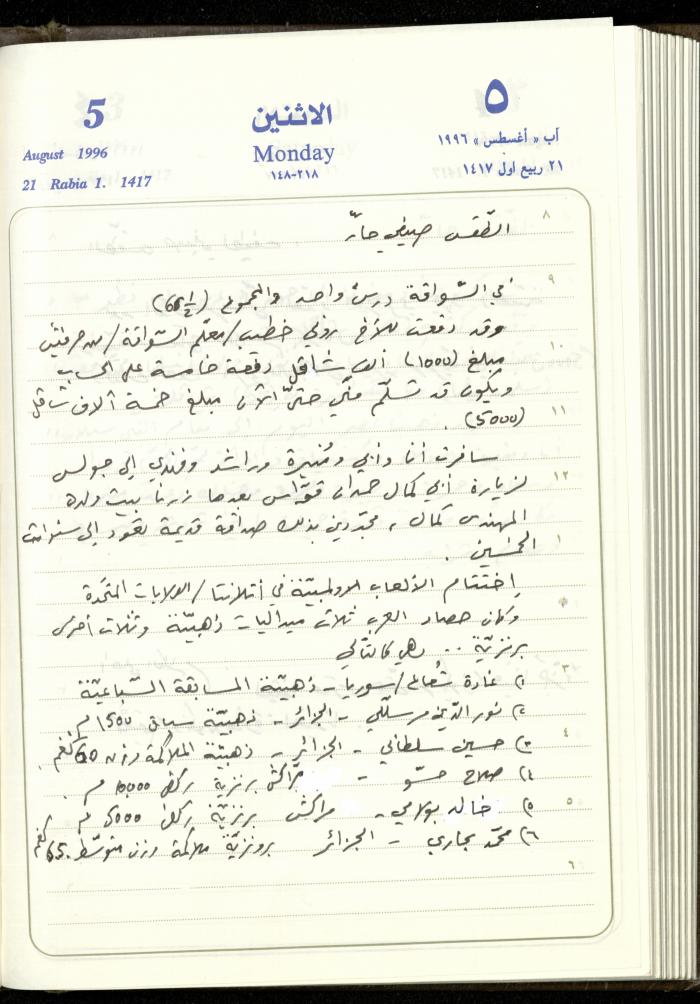 5 الاثنين ٥
August 1996 Monday آب « أغسطس » ١٩٩٦
21 Rabia 1. 1417 ٢١٨-١٤٨ ٢١ ربيع اول ١٤١٧
٨ الطّقس صيفي حارّ
٩ في السّواقة درسٌ واحد والمجموع (66½)
وقد دفعت للأخ روني خطيب/معلّم السّواقة/من حرفيش
١٠ مبلغ (1000) ألف شاقل دفعة خامسة على الحساب
ويكون قد تسلّم منّي حتّى الآن مبلغ خمسة آلاف شاقل
١١ (5000).
سافرت أنا وأبي ومُنيرة وراشد وفندي إلى جولس
١٢ لزيارة أبي كمال حمدان قوّاس بعدها زرنا بيت ولده
المهندس كمال، مجدّدين بذلك صداقة قديمة تعود إلى سنوات
١ الخمسين.
إختتام الألعاب الاولمبيّة في أتلانتا/الولايات المتّحدة
وكان حصاد العرب ثلاث ميداليات ذهبيّة وثلاث أخرى
برنزيّة .. وهي كالتّالي
٣ ١) غادة شُعاع/سوريا - ذهبيّة المسابقة السّباعيّة
٢) نور الدّين مرسلّي - الجزائر - ذهبيّة سباق 1500 م.
٤ ٣) حسين سلطاني - الجزائر - ذهبيّة الملاكمة وزن 60 كغم.
٤) صلاح حسّو - مرّاكش برنزيّة ركض 10,000 م.
٥ ٥) خالد بولامي - مراكش برنزيّة ركض 5000 م
٦) محمّد بحاري - الجزائر برونزيّة ملاكمة وزن متوسّط.
٦